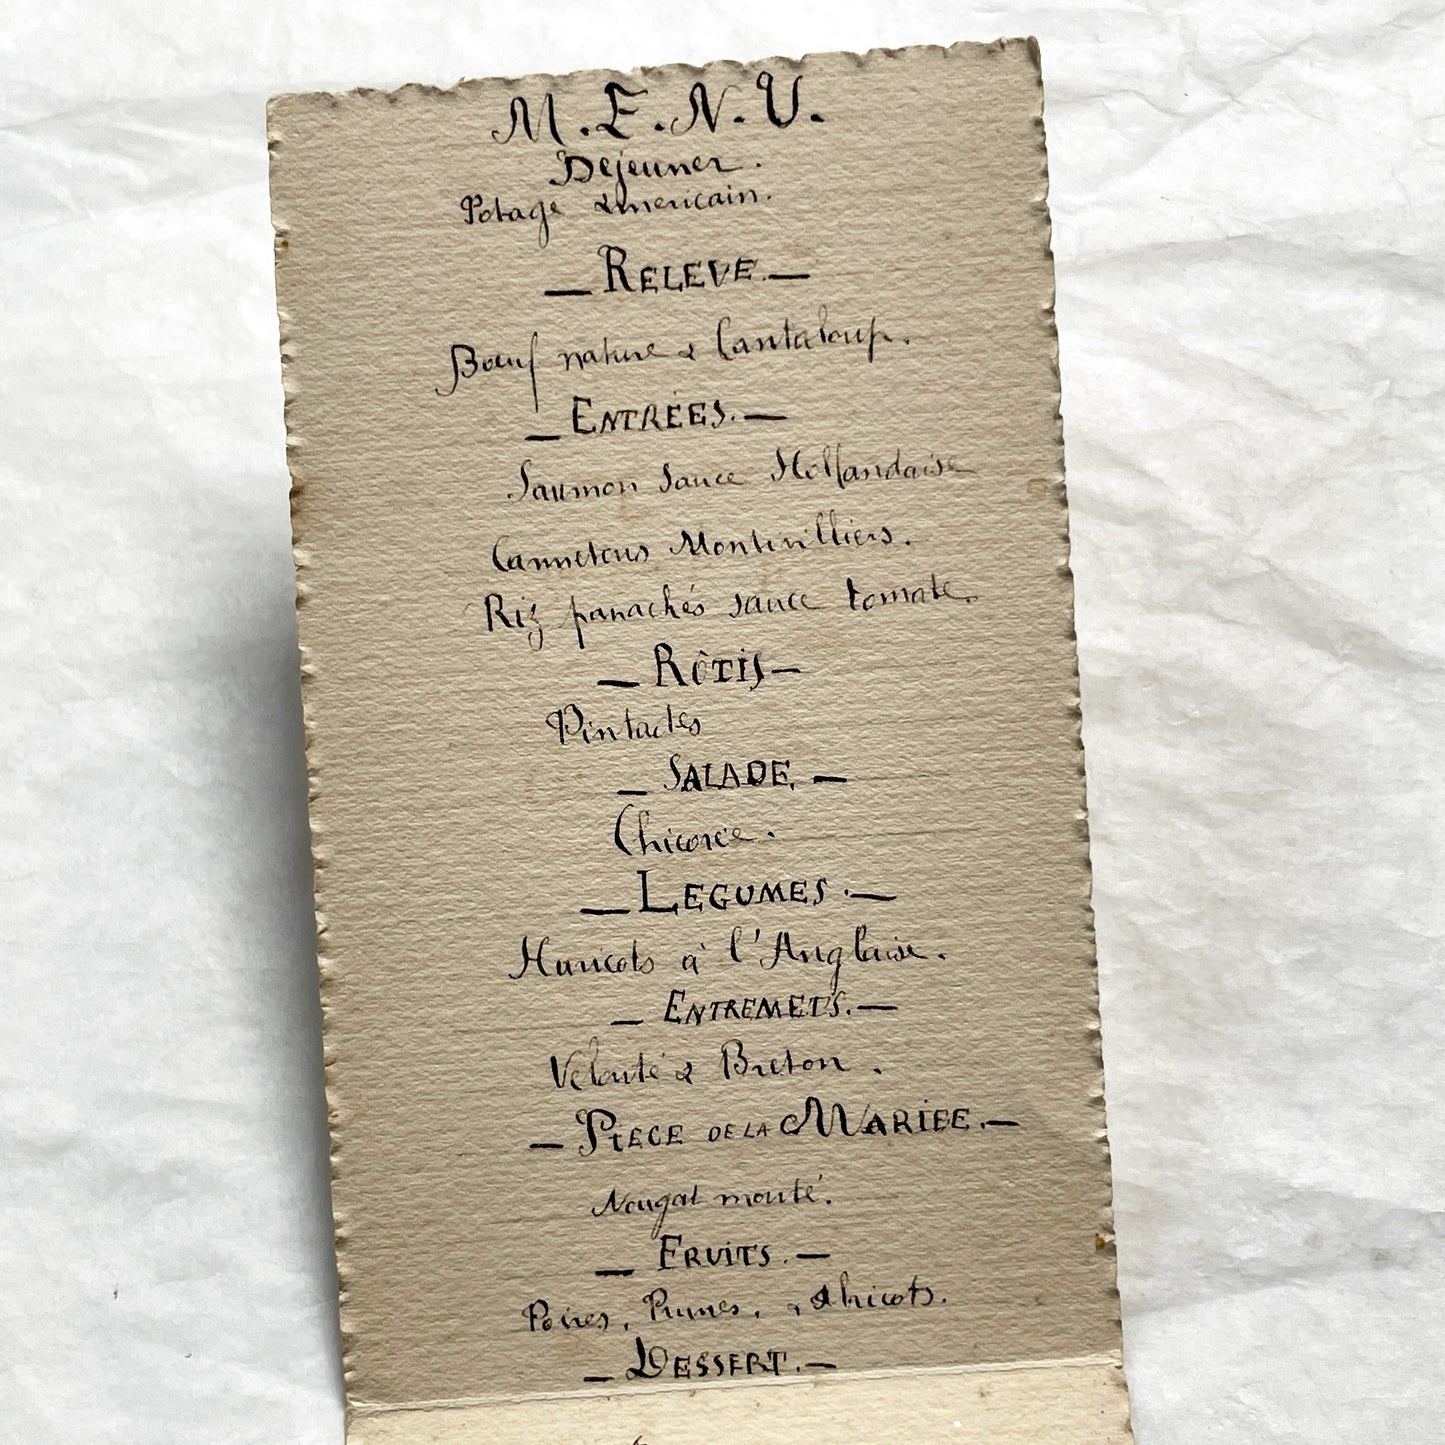 M.E.N.U.
Dejeuner.
Potage americain.
— RELEVE. —
Bœuf nature & Cantaloup.
— ENTRÉES. —
Saumon sauce Hollandaise
Cannetons Montivilliers.
Riz panachés sauce tomate.
— RÔTIS —
Pintades
— SALADE. —
Chicorée.
— LEGUMES. —
Haricots à l'Anglaise.
— ENTREMETS. —
Velouté & Breton.
— PIECE DE LA MARIEE. —
Nougat monté.
— FRUITS. —
Poires, Prunes, & Abricots.
— DESSERT. —